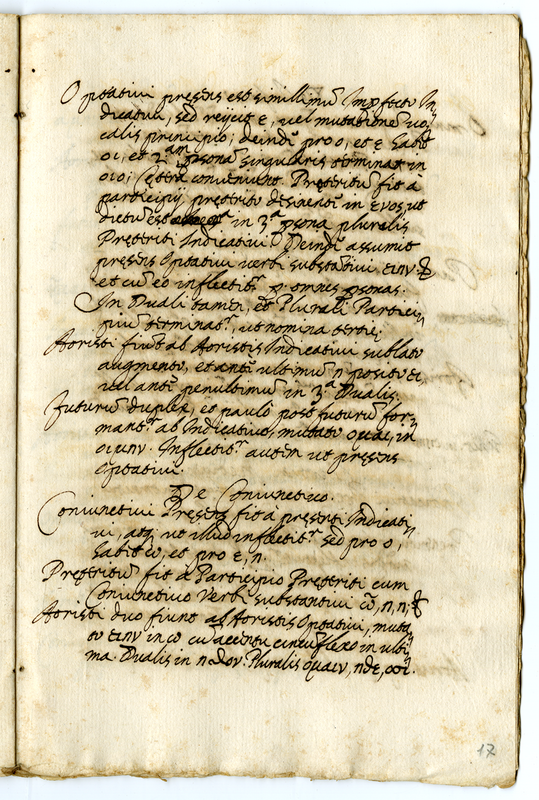 Optativi presens est simillimũ Impfecto In
dicativi, sed reijcit ε, vel mutationẽ vo,
calis principio; deindè pro o, et ε habet
οι, et 2.am psona singularis terminat in
οιο; Cętera conveniunt. Pręteritũ fit à
participij pręterito desinenti in ενος ut
dictũ est in 3.a psona pluralis
Pręteriti Indicativi. Deindè assumit
presens Optativi verbi substantivi, ειην &
et cũ eo inflectitr p omnes psonas.
In Duali tamen, et Plurali Partici,
pium terminatr, ut nomina tertię.
Aoristi fiũt ab Aoristis Indicativi sublato
augmento, et antè ultimũ η posito ει,
vel antè penultimum in 3.a Dualis.
Futurũ duplex, et paulò post futurũ for,
mantr ab Indicativo, mutato ομαι, in
οιμην. Inflectitr autem ut presens
Optativi.
De Coniunctivo.
Coniunctivi Pręsens fit à pręsenti Indicati
vi, atq ut illud inflectitr sed pro o,
habet ω, et pro ε, η.
Pręteritũ fit à Participio Pręteriti cum
Coniunctivo Verbi substantivi ὦ, ης, η; &
Aoristi duo fiunt ab Aoristis Optativi, muta
to ειην in ω cũ accentu circumflexo in ulti
ma. Dualis in ητον. Pluralis ωμεν, ητε, ωσι.
17